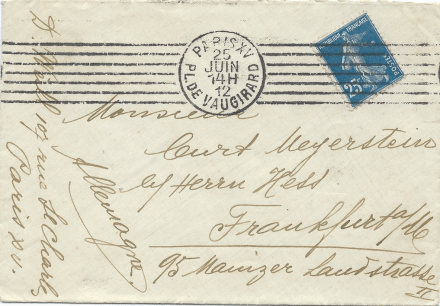 PARIS XV
25
JUIN
14H
12
PL. DE VAUGIRARD
RÉPUBLIQUE FRANÇAISE
POSTES
25c
Monsieur
Curt Meyerstein
b/ Herrn Hess
Frankfurt a/M
95 Mainzer Landstrasse
II
Allemagne
10, rue St Charles
Paris XV.